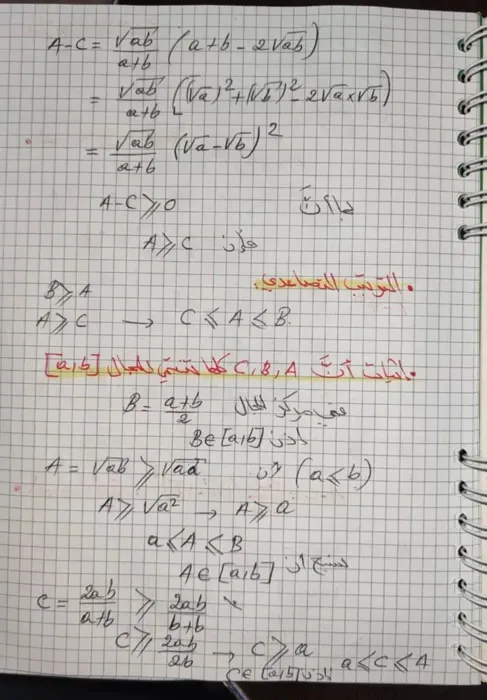 A-C = √ab/a+b (a+b - 2√ab)
= √ab/a+b ((√a)² + (√b)² - 2√a×√b)
= √ab/a+b (√a - √b)²
بما أنَّ A-C ⩾ 0
فإن A ⩾ C
• الترتيب التصاعدي.
B ⩾ A
A ⩾ C → C ⩽ A ⩽ B.
• إثبات أنَّ C, B, A كلها تنتمي للمجال [a,b]
B = a+b/2 هي مركز المجال
إذن B∈[a,b]
A = √ab ⩾ √aa لأن (a⩽b)
A ⩾ √a² → A ⩾ a
a ⩽ A ⩽ B
نستنتج أن A∈[a,b]
C = 2ab/a+b ⩾ 2ab/b+b
C ⩾ 2ab/2b → C ⩾ a
a ⩽ C ⩽ A إذن C∈[a,b]